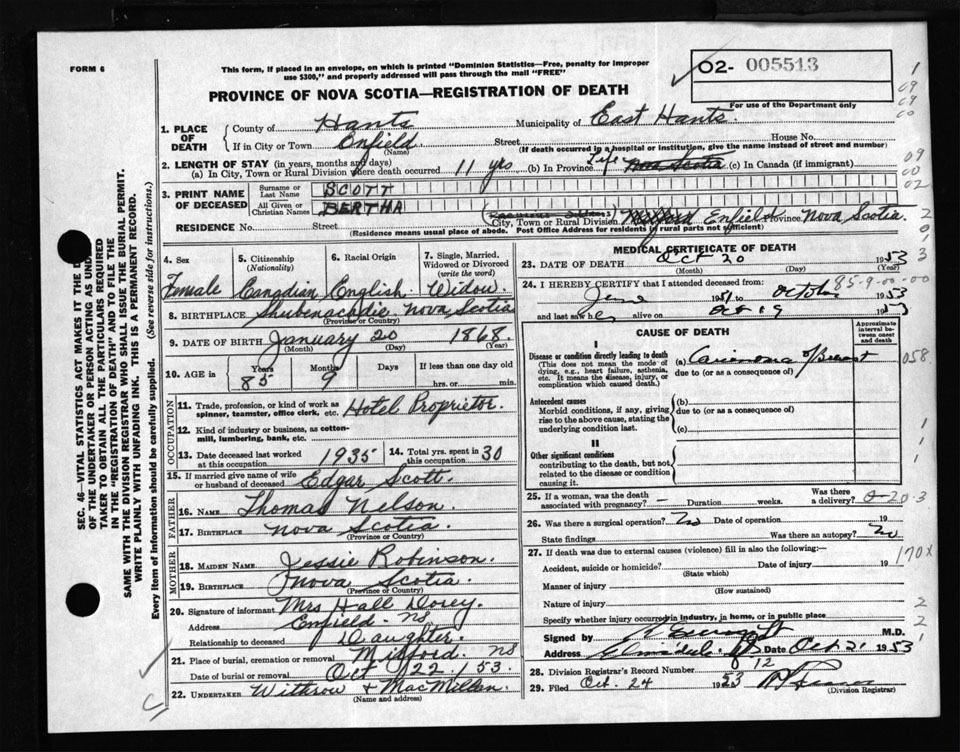 FORM 6
This form, if placed in an envelope, on which is printed "Dominion Statistics—Free, penalty for improper
use $300," and properly addressed will pass through the mail "FREE"
PROVINCE OF NOVA SCOTIA—REGISTRATION OF DEATH
O2- 005513
For use of the Department only
1. PLACE OF DEATH
County of Hants Municipality of East Hants.
If in City or Town Enfield (Name) Street House No.
(If death occurred in a hospital or institution, give the name instead of street and number)
2. LENGTH OF STAY (in years, months and days)
(a) In City, Town or Rural Division where death occurred 11 yrs (b) In Province Life Nova Scotia (c) In Canada (if immigrant)
3. PRINT NAME OF DECEASED
Surname or Last Name SCOTT
All Given or Christian Names BERTHA
RESIDENCE No. Street City, Town or Rural Division Milford Enfield Province Nova Scotia.
(Residence means usual place of abode. Post Office Address for residents in rural parts not sufficient)
4. Sex Female
5. Citizenship (Nationality) Canadian
6. Racial Origin English
7. Single, Married, Widowed or Divorced (write the word) Widow
8. BIRTHPLACE Shubenacadie Nova Scotia
(Province or Country)
9. DATE OF BIRTH January 20 1868
(Month) (Day) (Year)
10. AGE in Years 85 Months 9 Days If less than one day old hrs. or min.
OCCUPATION
11. Trade, profession, or kind of work as spinner, teamster, office clerk, etc. Hotel Proprietor.
12. Kind of industry or business, as cotton-mill, lumbering, bank, etc.
13. Date deceased last worked at this occupation 1935
14. Total yrs. spent in this occupation 30
15. If married give name of wife or husband of deceased Edgar Scott
FATHER
16. NAME Thomas Nelson
17. BIRTHPLACE Nova Scotia.
(Province or Country)
MOTHER
18. MAIDEN NAME Jessie Robinson.
19. BIRTHPLACE Nova Scotia.
(Province or Country)
20. Signature of informant Mrs Hall Dorey.
Address Enfield NS
Relationship to deceased Daughter.
21. Place of burial, cremation or removal Milford. NS
Date of burial or removal Oct 22 1953.
22. UNDERTAKER Withrow & MacMillan.
(Name and address)
MEDICAL CERTIFICATE OF DEATH
23. DATE OF DEATH Oct 20 1953
(Month) (Day) (Year)
85-9-00-00
24. I HEREBY CERTIFY that I attended deceased from:
June 1951 to October 1953
and last saw her alive on Oct 19 1953
CAUSE OF DEATH
Approximate interval between onset and death
I
Disease or condition directly leading to death
(This does not mean the mode of dying, e.g., heart failure, asthenia, etc. It means the disease, injury, or complication which caused death.)
(a) Carcinoma of Breast
due to (or as a consequence of)
Antecedent causes
Morbid conditions, if any, giving rise to the above cause, stating the underlying condition last.
(b)
due to (or as a consequence of)
(c)
II
Other significant conditions
contributing to the death, but not related to the disease or condition causing it.
25. If a woman, was the death associated with pregnancy? — Duration weeks. Was there a delivery? 0-20-3
26. Was there a surgical operation? No Date of operation 19
State findings Was there an autopsy? No
27. If death was due to external causes (violence) fill in also the following:—
Accident, suicide or homicide? Date of injury 19
(State which)
Manner of injury
(How sustained)
Nature of injury
Specify whether injury occurred in industry, in home, or in public place
Signed by M.D.
Address Date Oct 21 1953
28. Division Registrar's Record Number 12
29. Filed Oct. 24 1953
(Division Registrar)
058
170X
SEC. 46—VITAL STATISTICS ACT MAKES IT THE D
OF THE UNDERTAKER OR PERSON ACTING AS UND
TAKER TO OBTAIN ALL THE PARTICULARS REQUIRED
IN THE "REGISTRATION OF DEATH" AND TO FILE THE
SAME WITH THE DIVISION REGISTRAR WHO SHALL ISSUE THE BURIAL PERMIT.
WRITE PLAINLY WITH UNFADING INK. THIS IS A PERMANENT RECORD.
Every item of information should be carefully supplied. (See reverse side for instructions.)